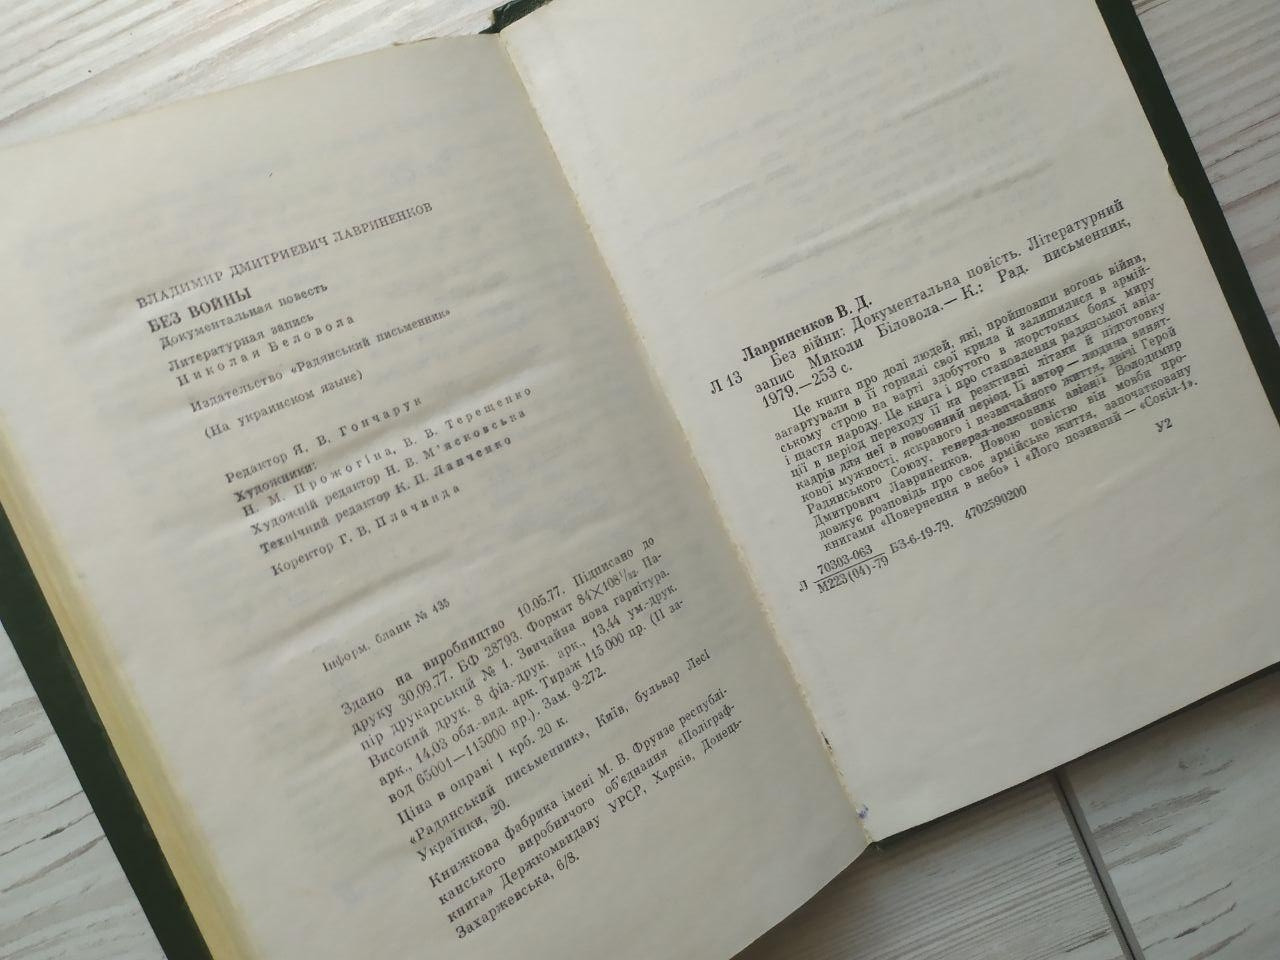 ВЛАДИМИР ДМИТРИЕВИЧ ЛАВРИНЕНКОВ
БЕЗ ВОЙНЫ
Документальная повесть
Литературная запись
Николая Беловола
Издательство «Радянський письменник»
(На украинском языке)
Редактор Я. В. Гончарук
Художники:
Н. М. Прожогіна, В. В. Терещенко
Художній редактор Н. В. М'ясковська
Технічний редактор К. П. Лапченко
Коректор Г. В. Плачинда
Інформ. бланк № 435
Здано на виробництво 10.05.77. Підписано до
друку 30.09.77. БФ 28793. Формат 84×108¹/₃₂. Па-
пір друкарський № 1. Звичайна нова гарнітура.
Високий друк. 8 фіз.-друк. арк., 13,44 ум.-друк.
арк., 14,03 обл.-вид. арк. Тираж 115 000 пр. (II за-
вод 65001—115000 пр.). Зам. 9-272.
Ціна в оправі 1 крб. 20 к.
«Радянський письменник», Київ, бульвар Лесі
Українки, 20.
Книжкова фабрика імені М. В. Фрунзе республі-
канського виробничого об'єднання «Поліграф-
книга» Держкомвидаву УРСР, Харків, Донець-
Захаржевська, 6/8.
Лавриненков В. Д.
Л 13 Без війни: Документальна повість. Літературний
запис Миколи Біловола.— К.: Рад. письменник,
1979.—253 с.
Це книга про долі людей, які, пройшовши вогонь війни,
загартували в її горнилі свої крила й залишилися в армій-
ському строю на варті здобутого в жорстоких боях миру
і щастя народу. Це книга і про становлення радянської авіа-
ції в період переходу її на реактивні літаки й підготовку
кадрів для неї в повоєнний період. Її автор — людина винят-
кової мужності, яскравого і незвичайного життя, двічі Герой
Радянського Союзу, генерал-полковник авіації Володимир
Дмитрович Лавриненков. Новою повістю він мовби про-
довжує розповідь про своє армійське життя, започатковану
книгами «Повернення в небо» і «Його позивний — «Сокіл-1».
Л 70303-063
М223(04)-79 БЗ-6-19-79. 4702590200
У2